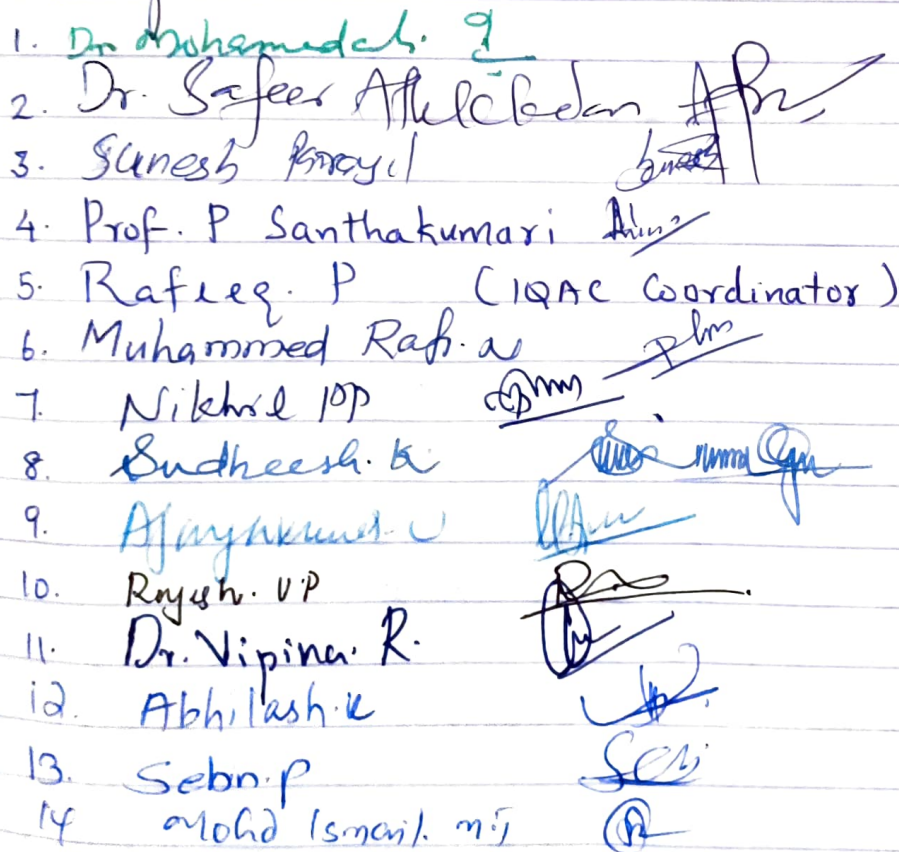 1. Dr Mohamedali.
2. Dr. Safeer
3. Sunesh Parayil
4. Prof. P Santhakumari
5. Rafeeq. P (IQAC Coordinator)
6. Muhammed Rafi. a
7. Nikhil pp
8. Sudheesh. K
9. Ajayakumar. U
10. Rajesh. V P
11. Dr. Vipina. R.
12. Abhilash. K
13. P
14 Mohd Ismail.